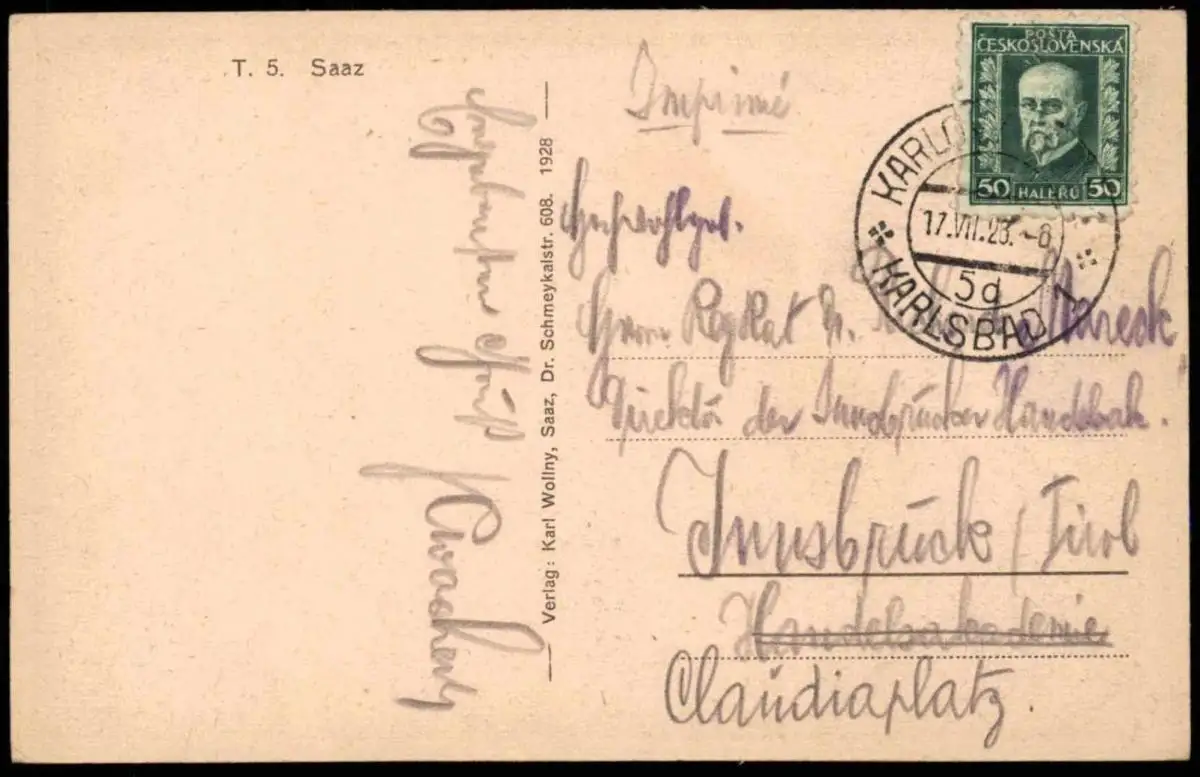 T. 5. Saaz
Verlag: Karl Wollny, Saaz, Dr. Schmeykalstr. 608. 1928
Imprimé
POŠTA
ČESKOSLOVENSKÁ
50 HALÉŘŮ 50
KARLO
17.VII.28. -6
5d
KARLSBAD 1
Hochwohlgeb.
Herrn Reg Rat Dr. Mareck
Direktor der Innsbrucker Handelsak.
Innsbruck / Tirol
Handelsakademie
Claudiaplatz.